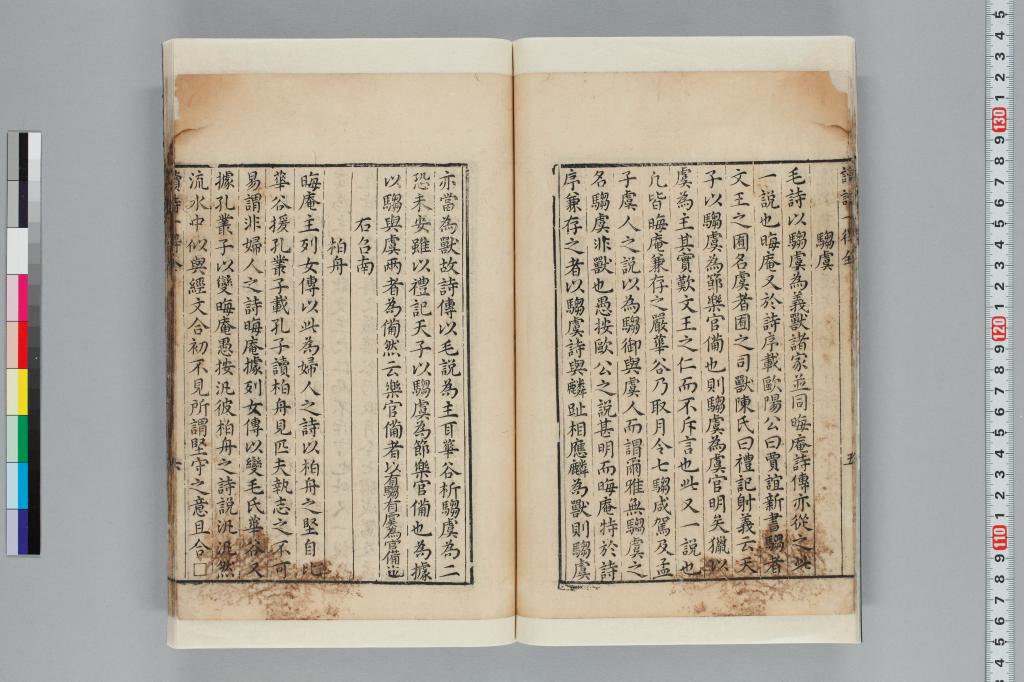 騶虞
毛詩以騶虞為義獸諸家並同晦庵詩傳亦從之此
一說也晦庵又於詩序載歐陽公曰賈誼新書騶者
文王之囿名虞者囿之司獸陳氏曰禮記射義云天
子以騶虞為節樂官備也則騶虞為虞官明矣獵以
虞為主其實歎文王之仁而不斥言也此又一說也
凡皆晦庵兼存之嚴華谷乃取月令七騶咸駕及孟
子虞人之說以為騶御與虞人而謂爾雅無騶虞之
名騶虞非獸也愚按歐公之說甚明而晦庵特於詩
序兼存之者以騶虞詩與麟趾相應麟為獸則騶虞
亦當為獸故詩傳以毛說為主耳華谷析騶虞為二
恐未安雖以禮記天子以騶虞為節樂官備也為據
以騶與虞兩者為備然云樂官備者以有騶有虞為官備也
右召南
柏舟
晦庵主列女傳以此為婦人之詩以柏舟之堅自比
華谷援孔叢子載孔子讀柏舟見匹夫執志之不可
易謂非婦人之詩晦庵據列女傳以變毛氏華谷又
據孔叢子以變晦庵愚按汎彼柏舟之詩說汎汎然
流水中似與經文合初不見所謂堅守之意且合□